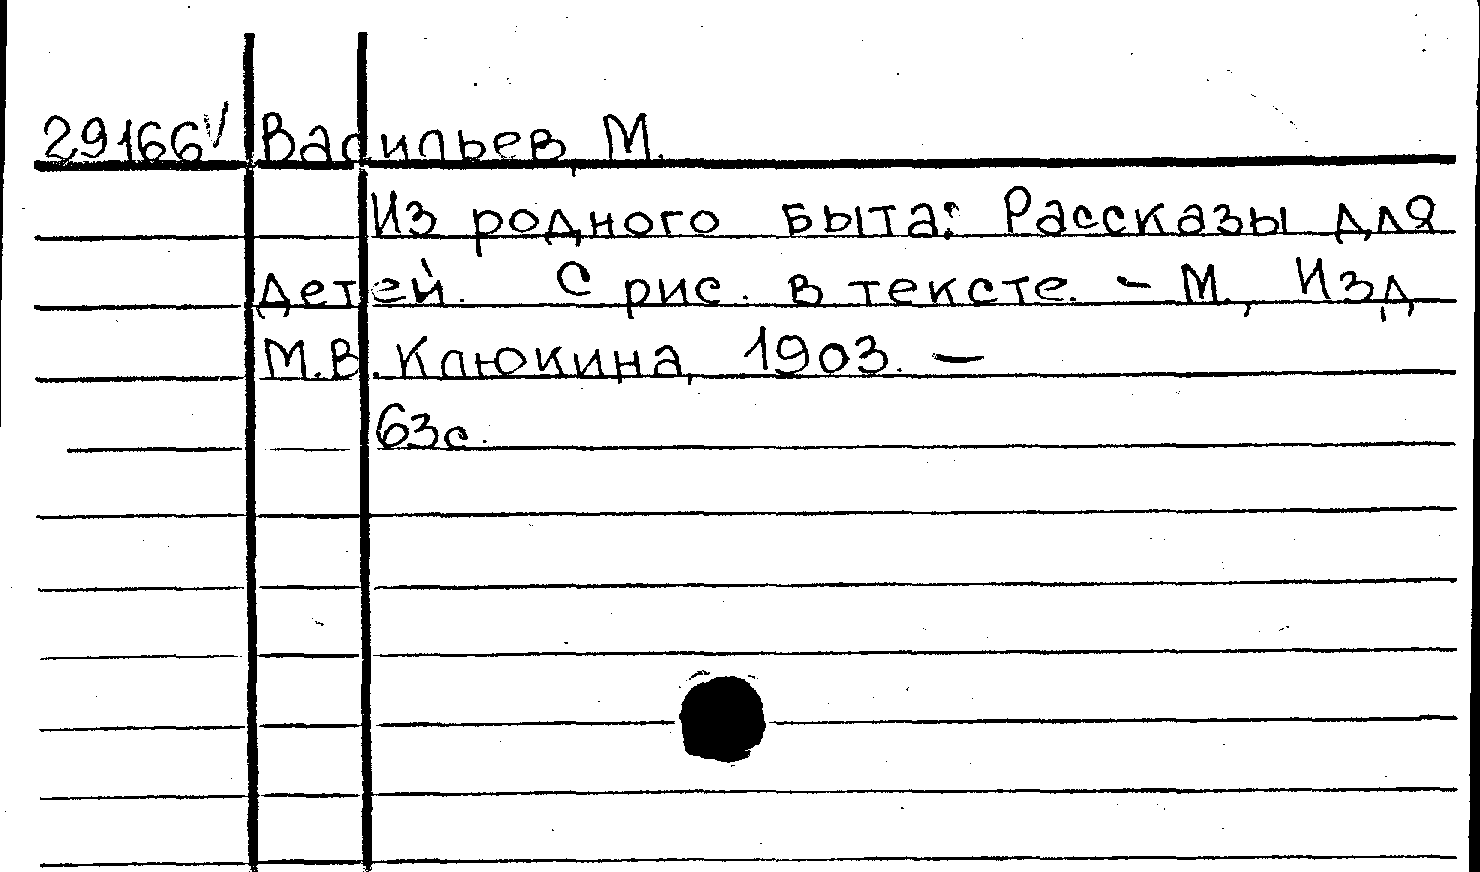 29166 Васильев, М.
Из родного быта: Рассказы для
детей. С рис. в тексте. - М., Изд.
М.В. Клюкина, 1903. —
63с.